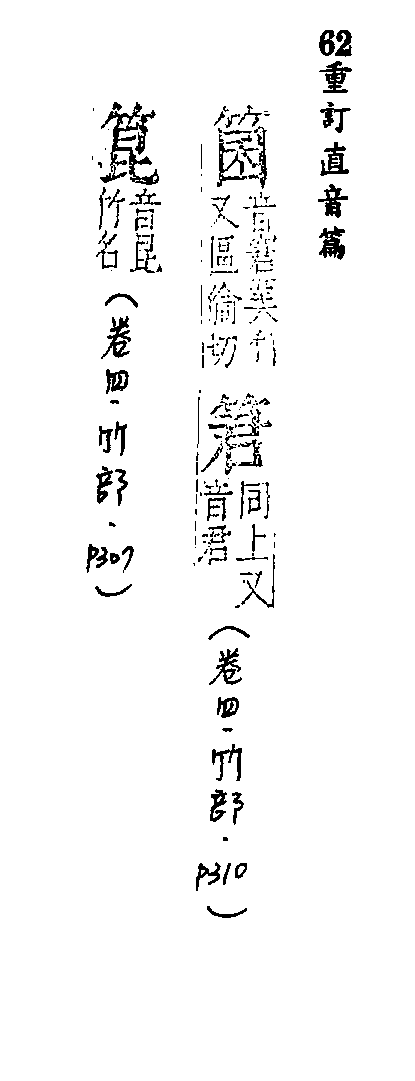 62重訂直音篇
箘
音窘美竹
又區倫切
䇹
同上又
音君
(卷四·竹部·p310)
箟
音昆
竹名
(卷四·竹部·p307)